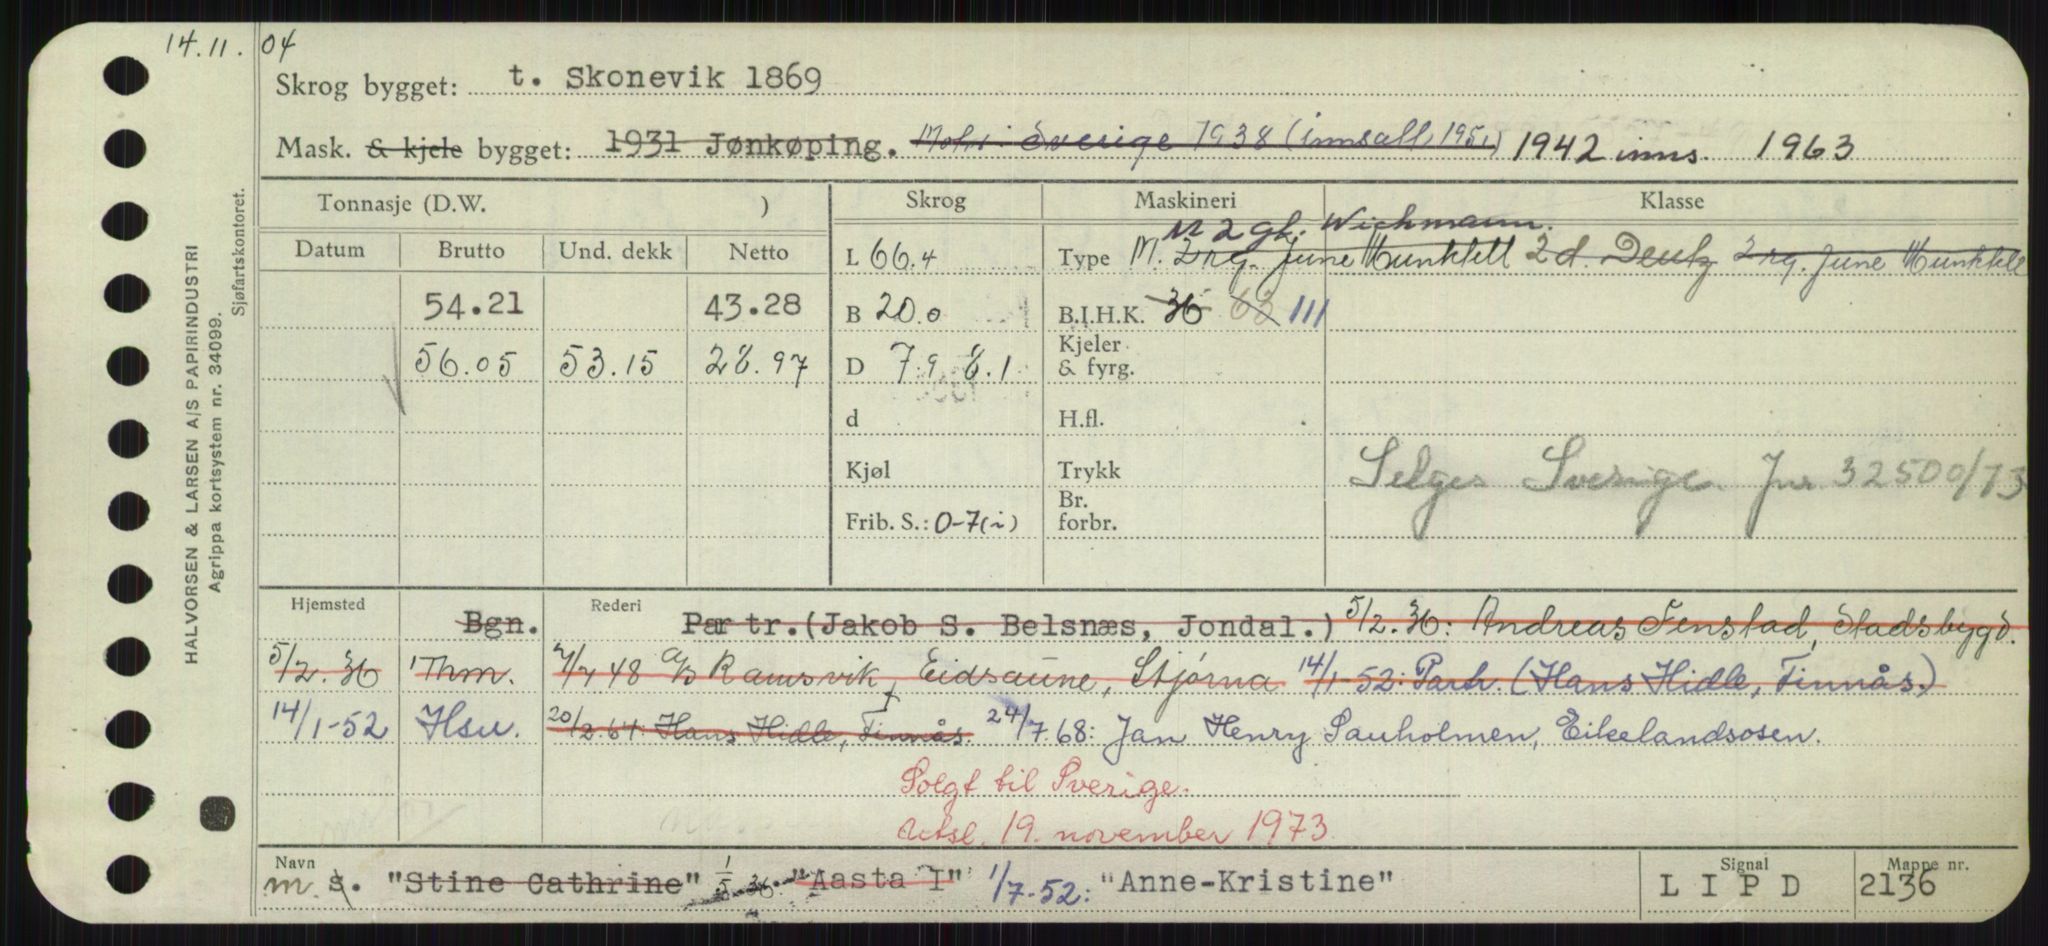 14.11. 04
Skrog bygget: t. Skonevik 1869
Mask. & kjele bygget: 1931 Jønkøping. Motor: Sverige 1938 (innsatt 1951) 1942 inns. 1963
HALVORSEN & LARSEN A/S PAPIRINDUSTRI
Agrippa kortsystem nr. 34099.
Sjøfartskontoret.
Tonnasje (D.W. ) Skrog Maskineri Klasse
M 2 gl. Wichmann.
Datum Brutto Und. dekk Netto L 66.4 Type M. 2 rg. June Munktell 2 d. Deutz 2 rg. June Munktell
54.21 43.28 B 20.0 B.I.H.K. 36 63 111
56.05 53.15 28.97 D 7.9 8.1 Kjeler & fyrg.
d H.fl.
Kjøl Trykk Selges Sverige. Jnr. 32500/73
Frib. S.: 0-7(i) Br. forbr.
Hjemsted Bgn. Rederi Partr. (Jakob S. Belsnæs, Jondal.) 5/2.36: Andreas Fenstad, Stadsbygd.
5/2.36 Thm. 7/7 48 A/S Ramsvik, Eidsaune, Stjørna 14/1-52: Partr. (Hans Hidle, Finnås.)
14/1-52 Hsu. 20/2 64: Hans Hidle, Finnås. 24/7 68: Jan Henry Sauholmen, Eikelandsosen.
Solgt til Sverige.
Utsl. 19. november 1973
Navn m s. "Stine Cathrine" 1/5 36: "Aasta I" 1/7-52: "Anne-Kristine" Signal L I P D Mappe nr. 2136